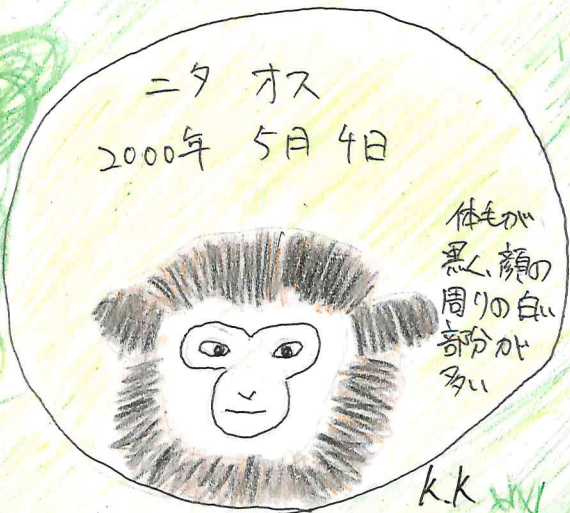 ニタ オス
2000年 5月 4日
体毛が
黒く、顔の
周りの白い
部分が
多い
K.K